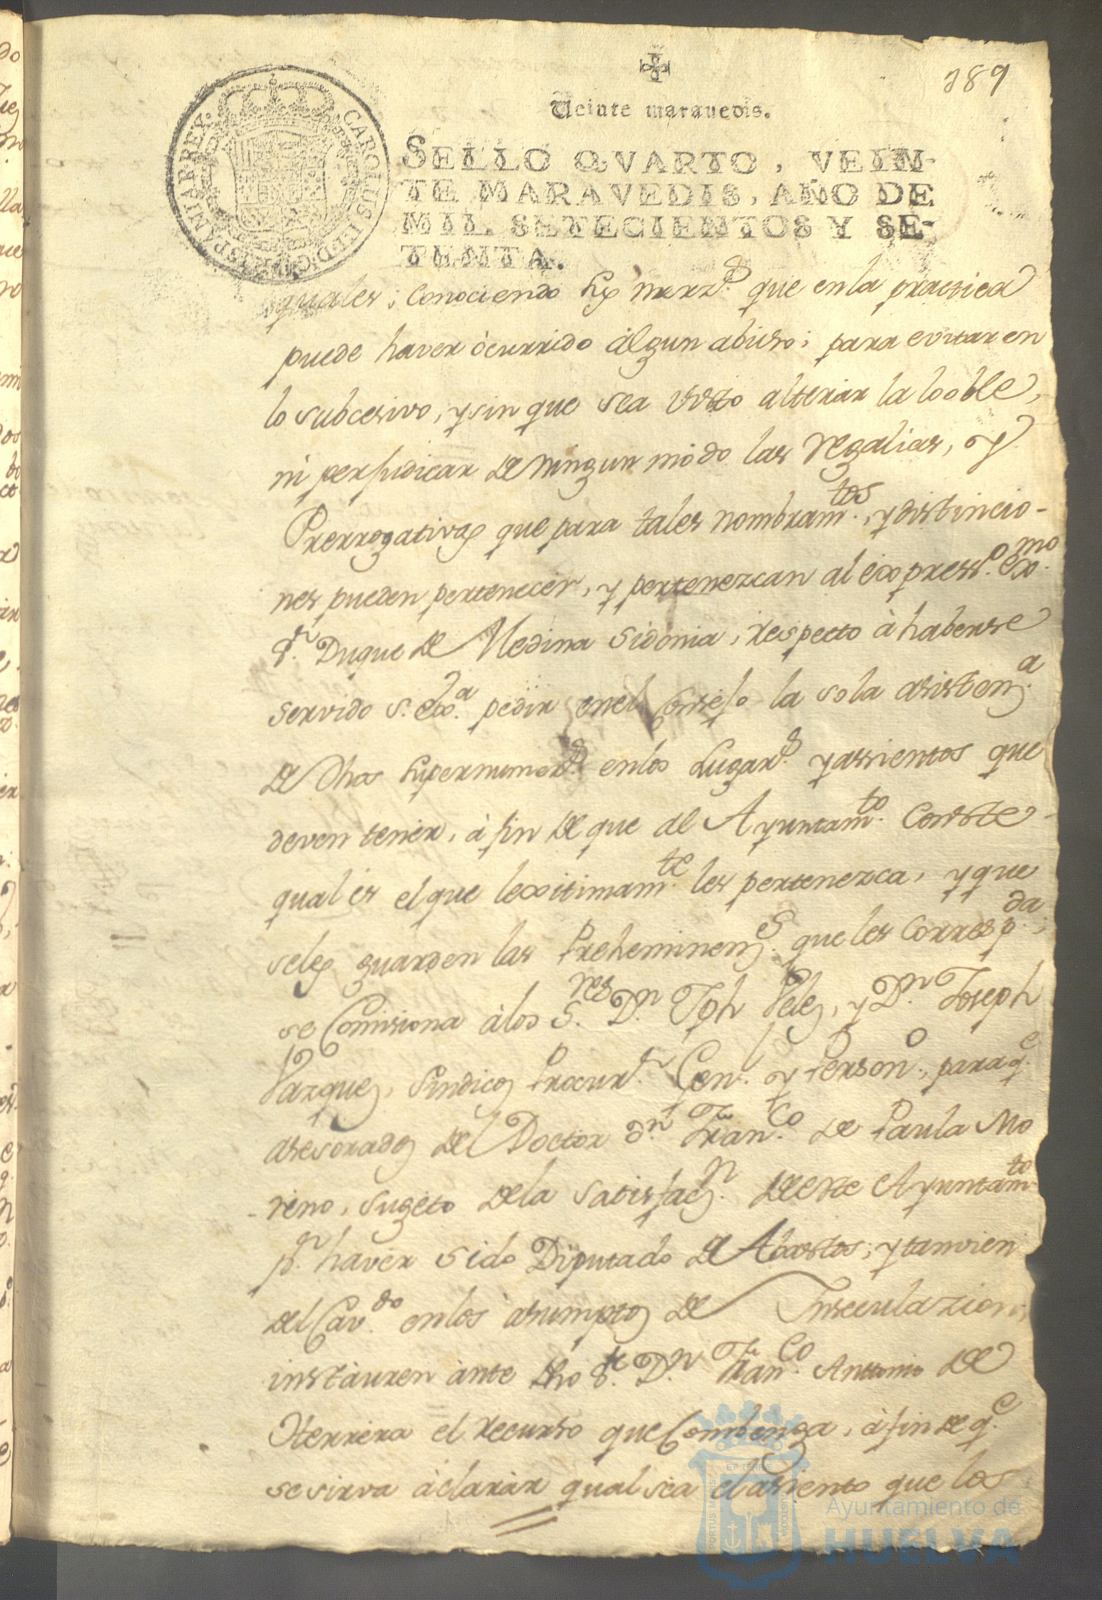 189
Veinte maravedis.
SELLO QVARTO, VEIN-
TE MARAVEDIS, AÑO DE
MIL SETECIENTOS Y SE-
TENTA.
CAROLUS III D G HISPANIAR REX
quales; conociendo sus merz.^s que en la practica
puede haver òcurrido àlgun abuso; para evitar en
lo subcesivo, y sin que sea visto alterar la looble,
ni perjudicar de ningun módo las regalias, y
Prerrogativas que para tales nombram.^tos, y distincio-
nes pueden pertenecer, y pertenezcan al expres.^o Ex.^mo
S.^r Duque de Medina Sidonia, respecto à haberse
servido S. Ex.^a pedir en el Consejo la sola asisten.^a
de dhos en los Lugar.^s y asientos que
deven tener, à fin de que al Ayuntam.^to Conste
qual és el que lexitimam.^te les pertenezca, y que
seles guarden las Preheminen.^s que les Corresp.^da;
se Comisiona àlos S.^res D.^n Jph Velez, y D.^n Joseph
Vazquez, Sindicos Procur.^s Gen.^l y Person.^o, para q.^e
asesorados del Doctor d.^n Fran.^co de Paula Mo
reno, sugeto dela satisfac.^n deeste Ayuntam.^to
p.^r haver sido Diputado de Abastos; y tanvien
del Cav.^do en los àsumptos de Inseculazion,
instàuren ànte dho S.^r D.^n Fran.^co Antonio de
Herrera el recurso que Combenga, à fin de q.^e
se sirva àclarar qual sea el asiento que los
Ayuntamiento de
HUELVA